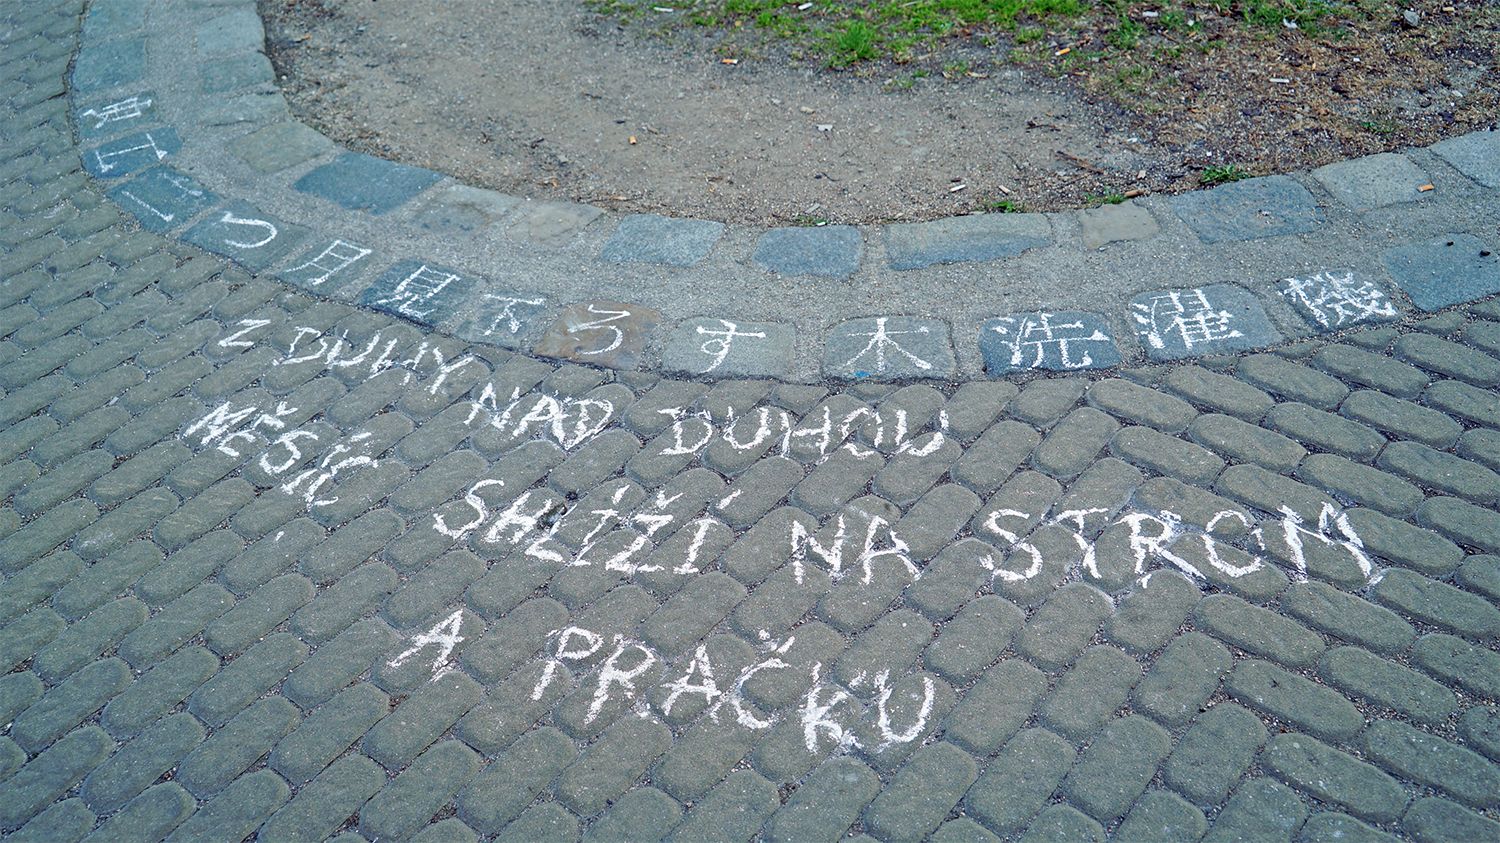 虹二つ月見下ろす木洗濯機
Z DUHY NAD DUHOU
MĚSÍC SHLÍŽÍ NA STROM
A PRAČKU